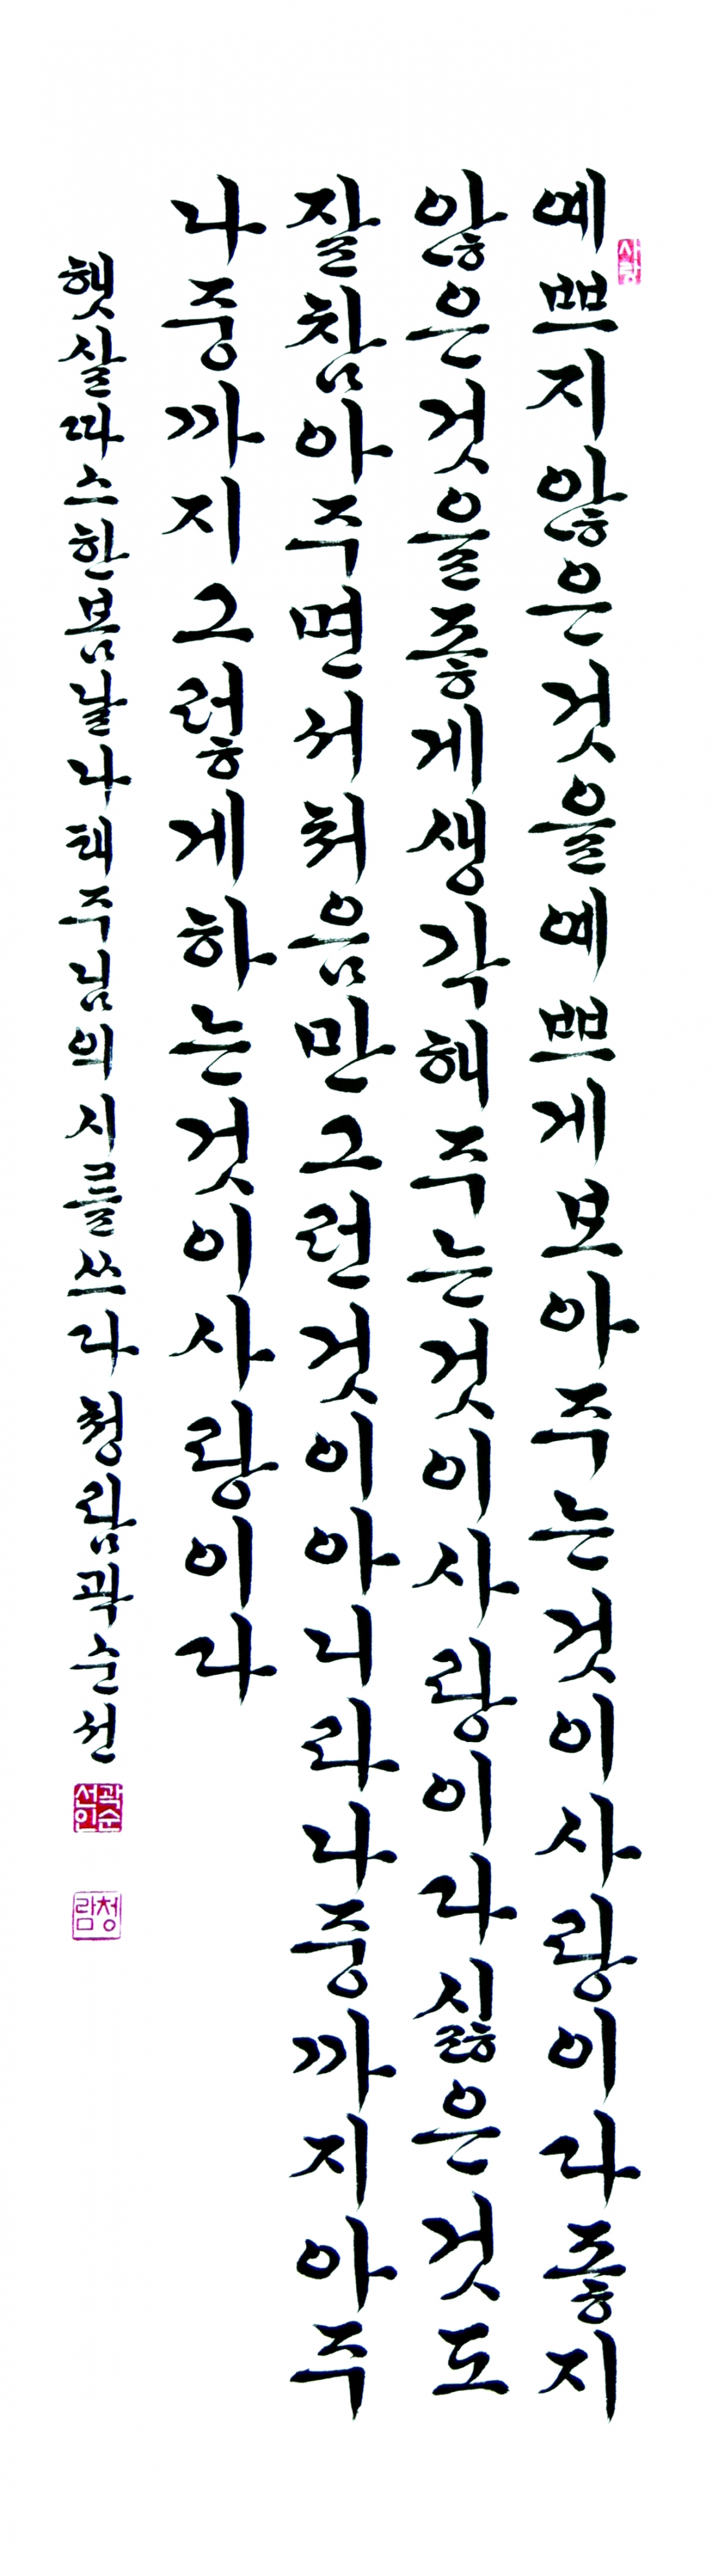 사랑
예쁘지않은것을예쁘게보아주는것이사랑이라좋지
않은것을좋게생각해주는것이사랑이라싫은것도
잘참아주면서처음만그런것이아니라나중까지아주
나중까지그렇게하는것이사랑이라
햇살따스한봄날나태주님의시를쓰다청람곽순선
곽순선인
청람